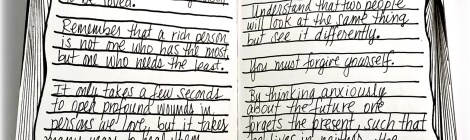 to be loved.
Remember that a rich person
is not one who has the most,
but one who needs the least.
It only takes a few seconds
to open profound wounds in
persons we love, but it takes
many years to heal them.
Understand that two people
will look at the same thing
but see it differently.
You must forgive yourself.
By thinking anxiously
about the future one
forgets the present, such that
lives in neither the